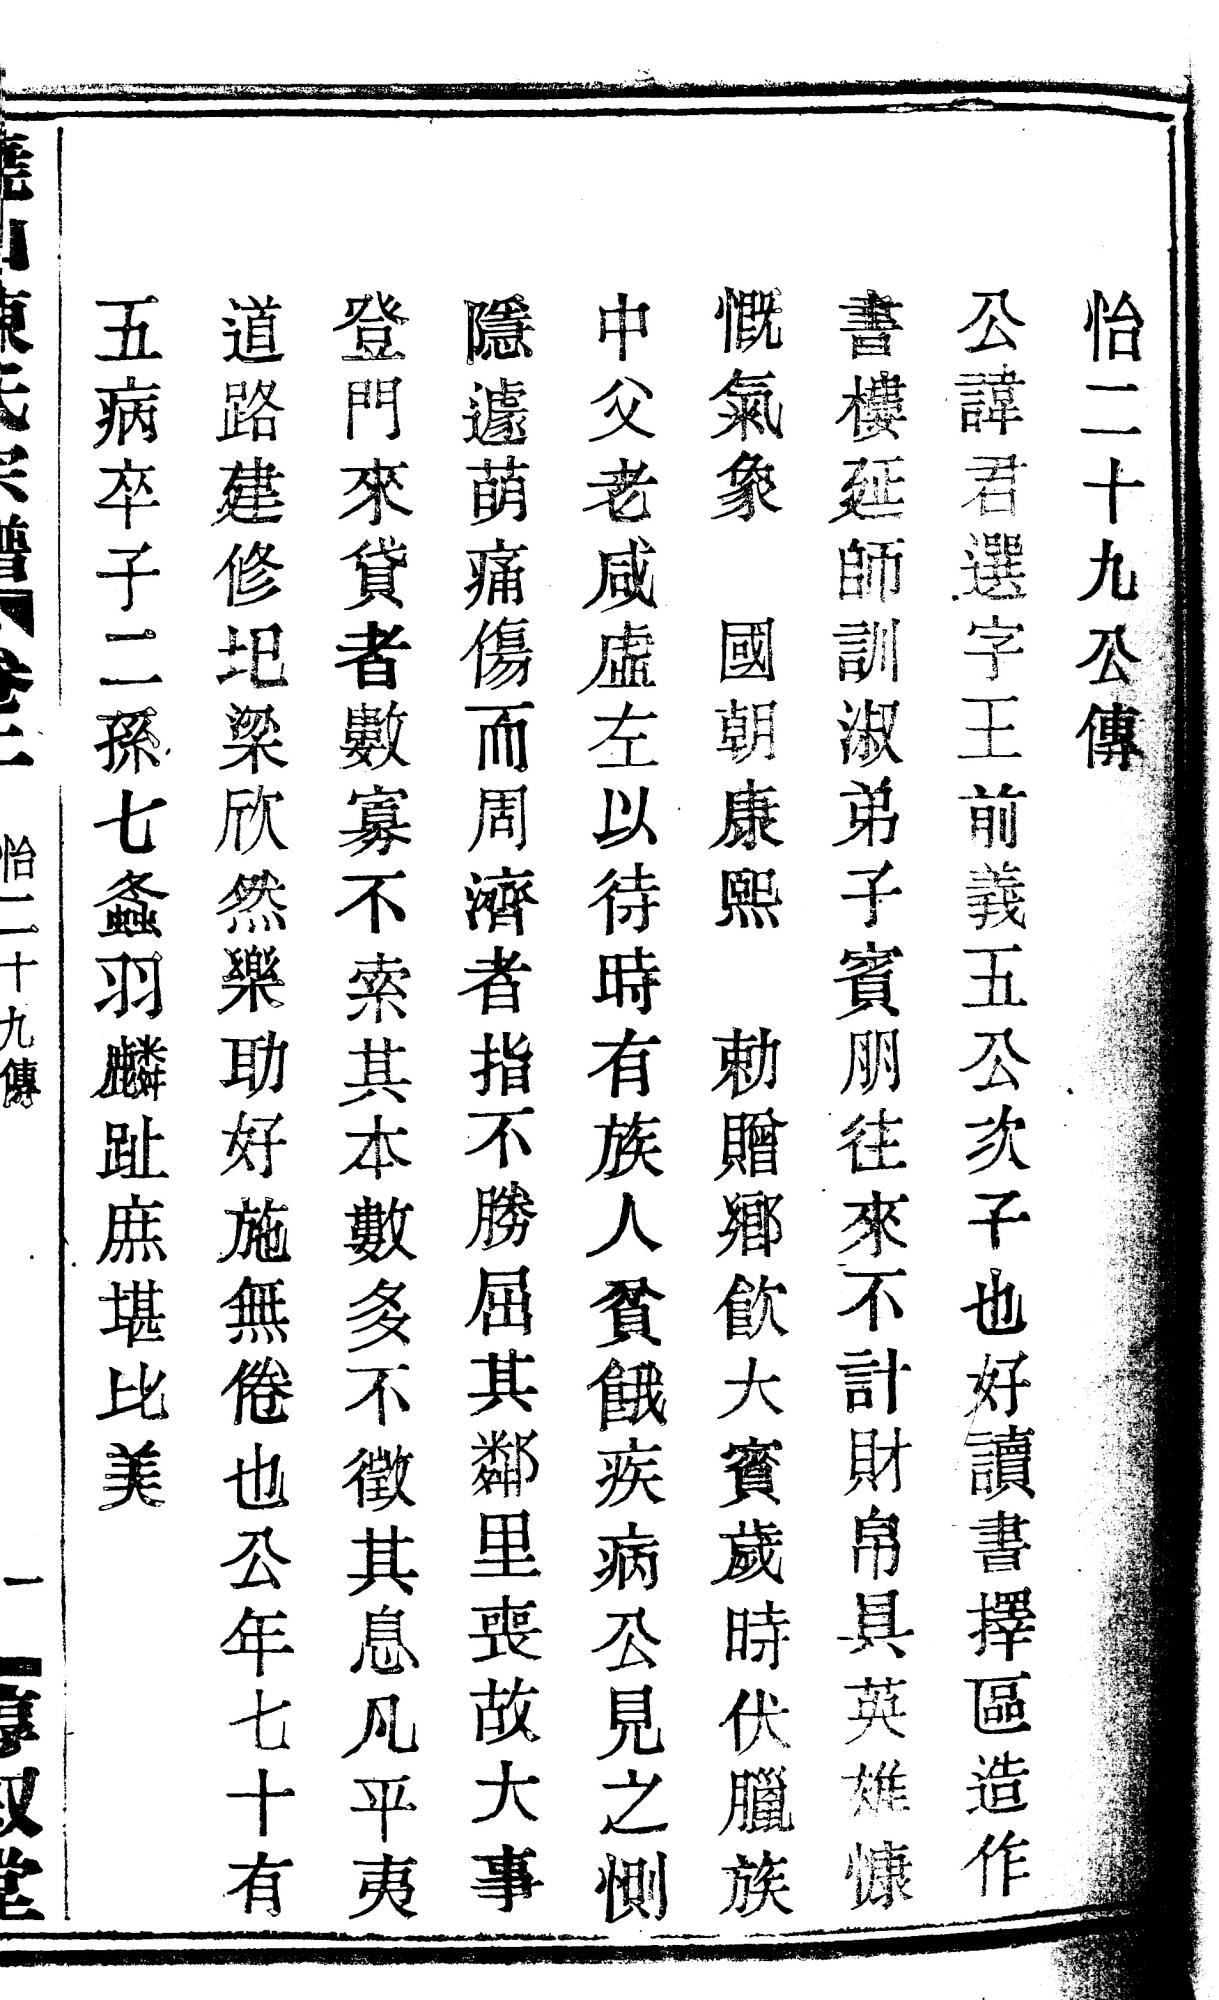 怡二十九公傳
公諱君選字王前義五公次子也好讀書擇區造作
書樓延師訓淑弟子賓朋往來不計財帛具英雄慷
慨氣象　國朝康熙　勅贈鄉飲大賓歲時伏臘族
中父老咸虛左以待時有族人貧餓疾病公見之惻
隱遽萌痛傷而周濟者指不勝屈其鄰里喪故大事
登門來貸者數寡不索其本數多不徵其息凡平夷
道路建修圯梁欣然樂助好施無倦也公年七十有
五病卒子二孫七螽羽麟趾庶堪比美
氏宗譜 卷二 怡二十九傳 一 叙堂